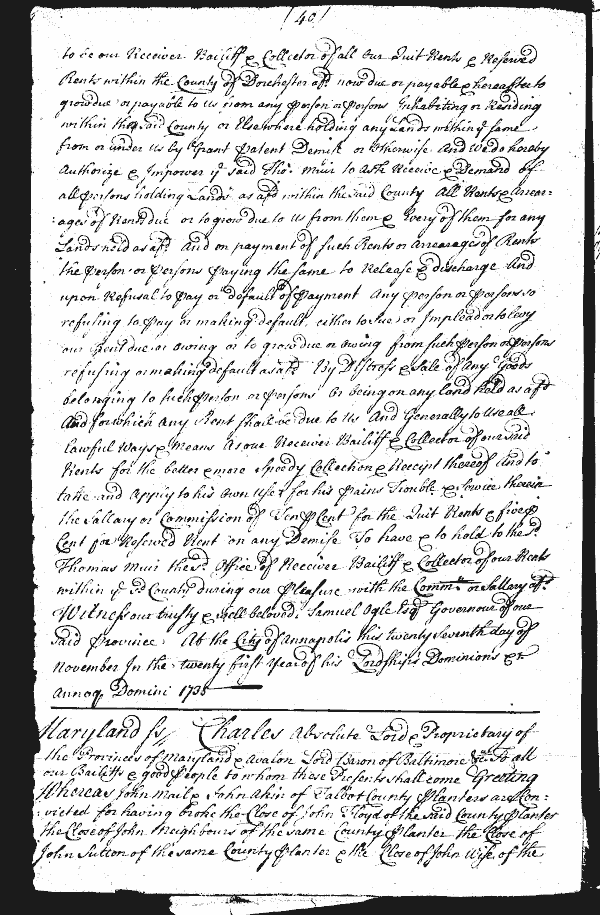 (40)
to be our Receiver Bailiff & Collector of all Our Quit Rents & Reserved
Rents within the County of Dorchester afd. now due or payable & hereafter to
grow due or payable to us from any person or persons Inhabiting or Residing
within the said County or Elsewhere holding any Lands within ye same
from or under us by Grant Patent Demise or otherwise And we do hereby
Authorize & Impower ye said Thos. Muir to Ask Receive & Demand of
all persons holding Lands as afd within the said County All Rents & Arrear-
ages of Rent due or to grow due to us from them & Every of them for any
Lands held as afd. And on payment of such Rents or Arrearages of Rents
the person or persons paying the same to Release & discharge And
upon Refusal to pay or default of payment Any person or persons so
refusing to pay or making default either to Sue or Implead or to levy
our Rent due or owing or to grow due or owing from such person or persons
refusing or making default as afd. By Distress & Sale of any Goods
belonging to such person or persons Or being on any land held as afd
And for which any Rent shall be due to Us And Generally to use all
Lawful Ways & Means As our Receiver Bailiff & Collector of our said
Rents for the better & more Speedy Collection & Receipt thereof And to
take and Apply to his own Use for his pains Trouble & Service therein
the Sallary or Commission of Ten P Cent for the Quit Rents & five P
Cent for Reserved Rent on any Demise To have & to hold to the sd.
Thomas Muir the sd. Office of Receiver Bailiff & Collector of our Rents
within ye sd County during our Pleasure with the Commn. or Sallary afd.
Witness our trusty & well beloved Samuel Ogle Esqr. Governour of our
said Province At the City of Annapolis this twenty seventh day of
November In the twenty first Year of his Lordships Dominions &c.
Annoq Domini 1735
Maryland ss Charles Absolute Lord & Proprietary of
the Provinces of Maryland & Avalon Lord Baron of Baltimore &c. To all
our Bailiffs & good People to whom these Presents shall come Greeting
Whereas John & John Akin of Talbot County Planters are Con-
victed for having broke the Close of John Floyd of the said County Planter
the Close of John Neighbours of the same County Planter the Close of
John Sutton of the same County Planter & the Close of John Wise of the